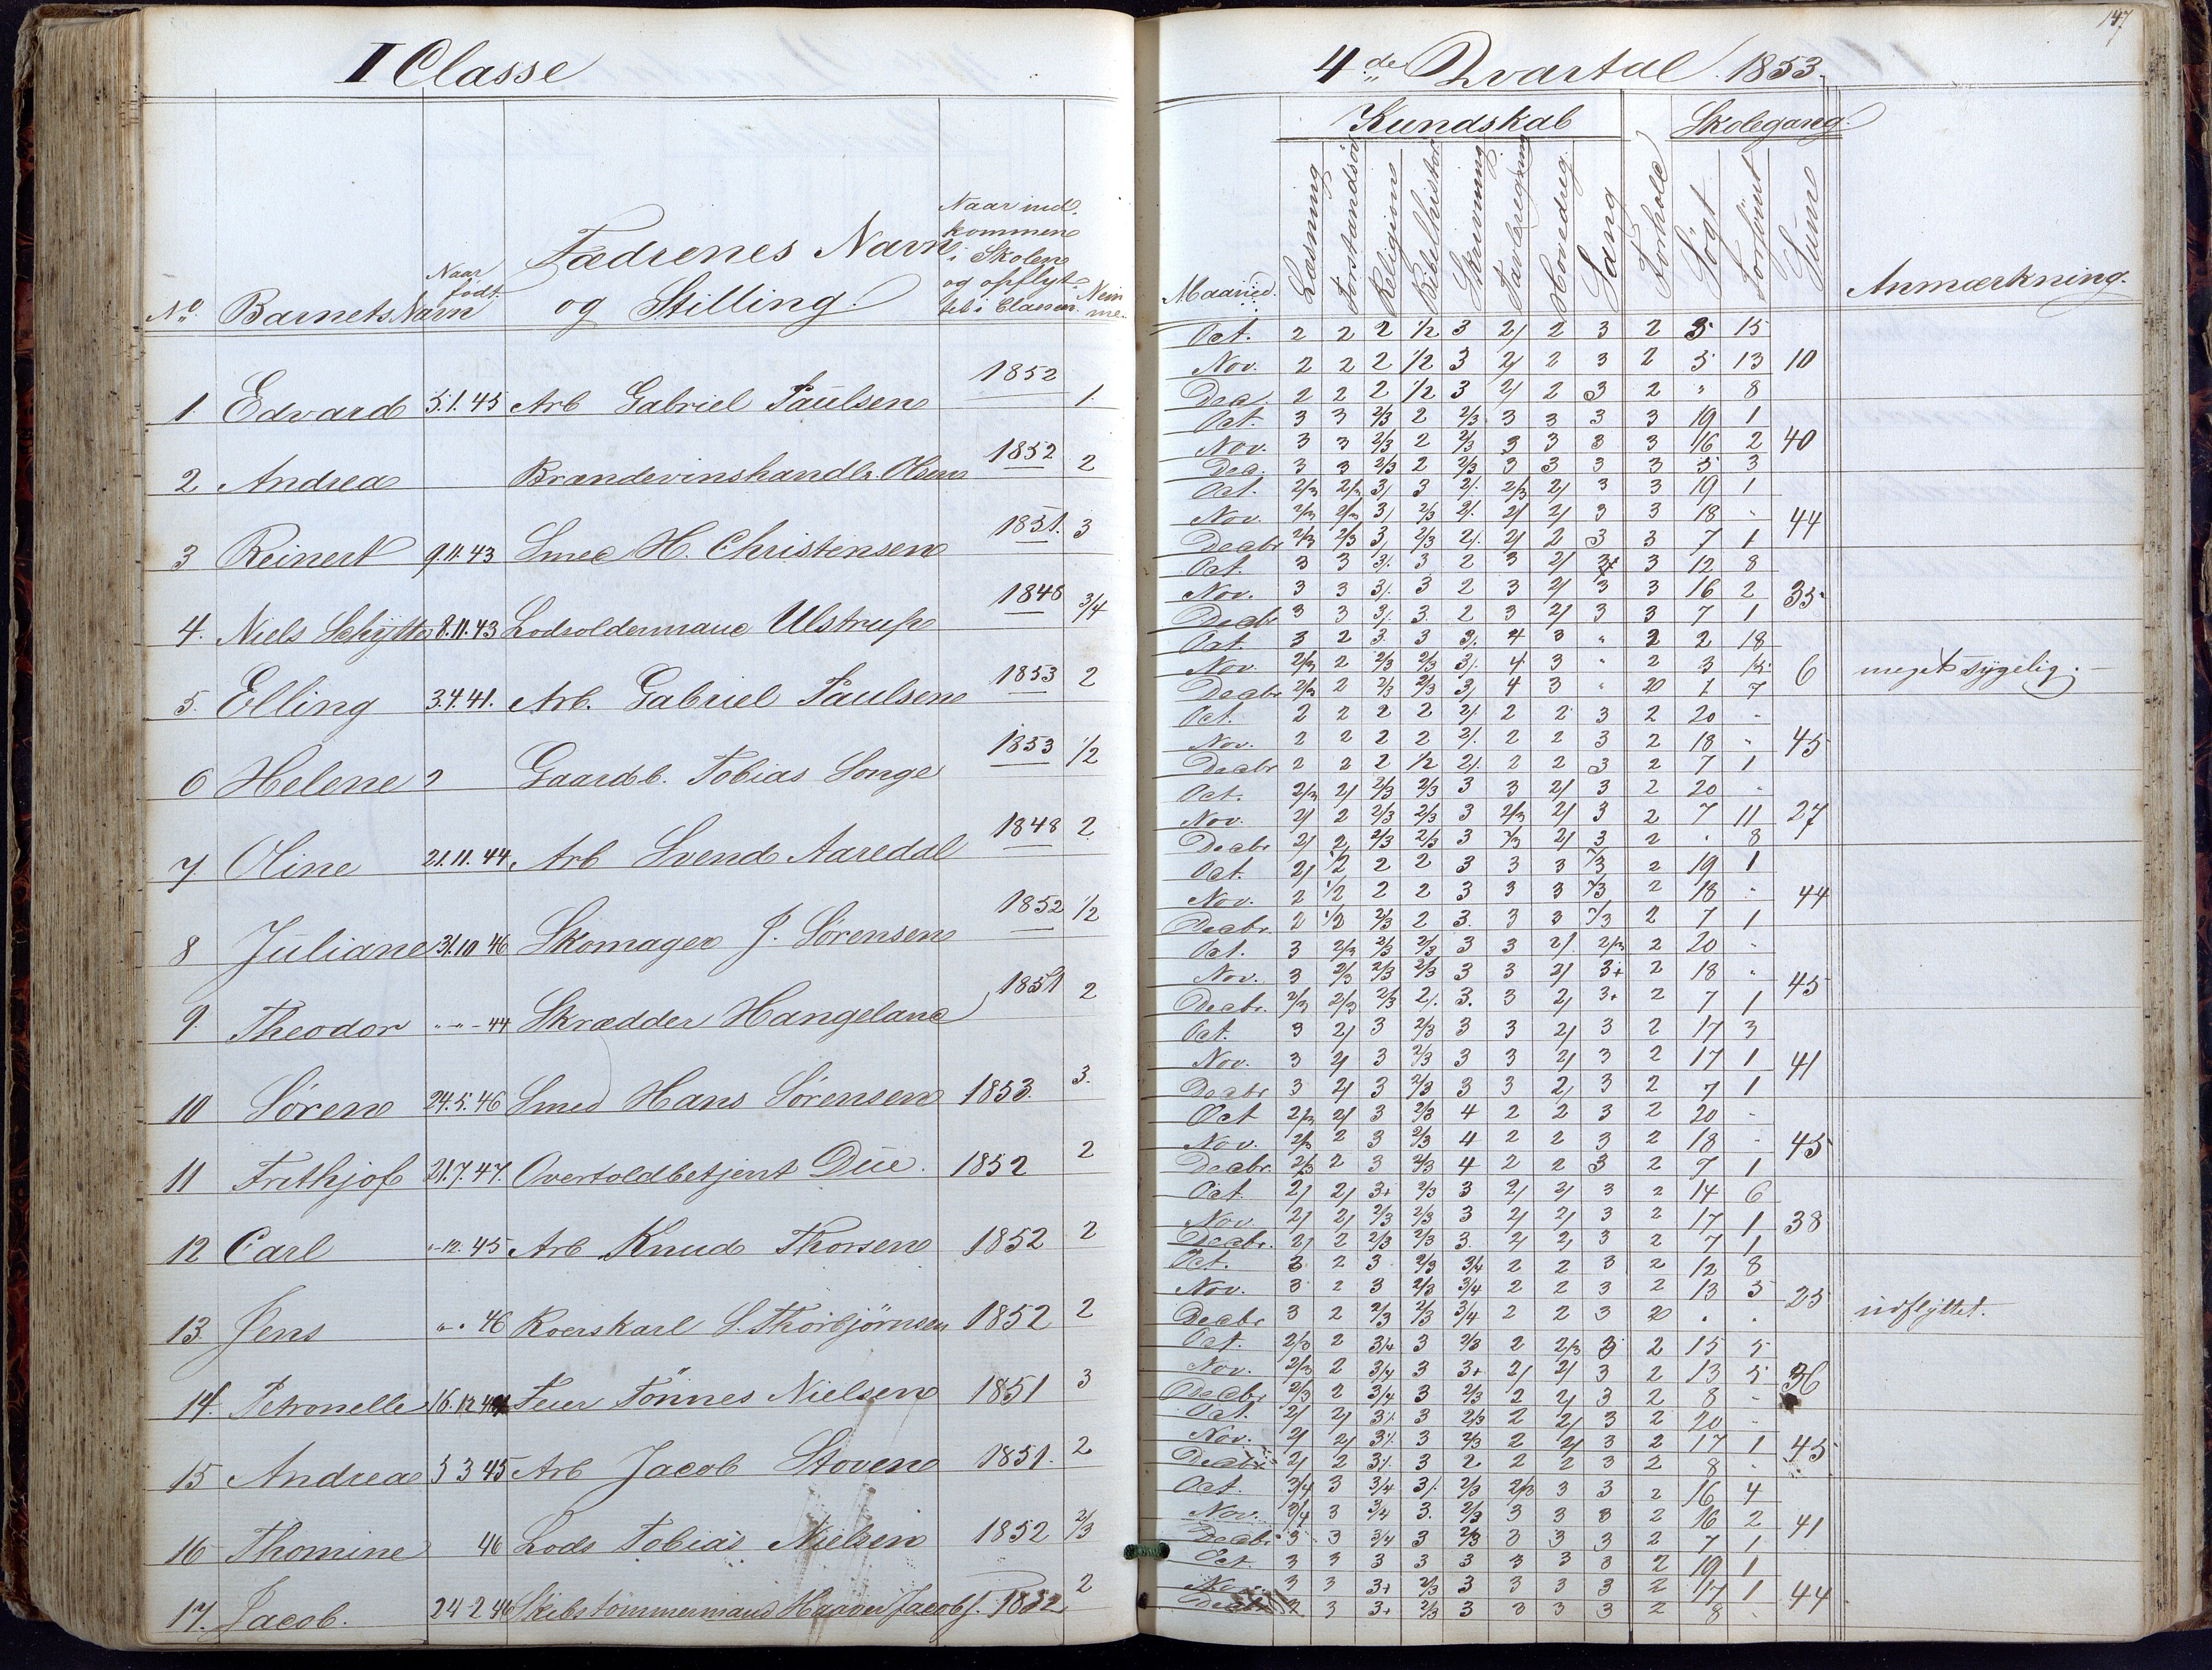 I Classe
No. Barnets Navn Naar født. Fædrenes Navn og Stilling. Naar ind kommen i Skolen og opflyt tet i Classen. Nem me.
1. Edvard 5.1.45 Arb Gabriel Paulsen 1852 1.
2 Andrea Brændevinshandlr. Olsen 1852 2
3 Reinert 9.11.43 Smed H. Christensen 1851. 3
4. Niels Schytte 8.11.43 Lodsoldermand Ulstrup 1848 3/4
5. Elling 3.4.41. Arb. Gabriel Paulsen 1853 2
6 Helene Gaardb. Tobias Songe 1853 1/2
7 Oline 21.11.44 Arb Svend Aaredal 1848 2
8 Juliane 31.10 46 Skomager J. Sørensen 1852 1/2
9. Theodor " - " - 44 Skrædder Hangeland 1851 2
10 Søren 24.5.46 Smed Hans Sørensen 1853. 3.
11 Frithjof 21.7.47. Overtoldbetjent Due. 1852 2
12 Carl "-12.45 Arb Knud Thorsen 1852 2
13. Jens " . 46 Roerskarl S. Thorbjörnsen 1852 2
14. Petronelle 16.12 Feier Tönnes Nielsen 1851 3
15 Andrea 5 3 45 Arb Jacob Stoven 1851. 2
16 Thomine 46 Lods Tobias Nielsen 1852 2/3
17. Jacob. 24-2 46 Skibstømmermand Jacobs. 1852 2
147
4de Qvartal 1853.
Kundskab Skolegang.
Maaned. Læsning Forstandsøv Religion Bibelhistor Skrivning Tavleregning Hovedreg. Sang Forhold Søgt Forsømt Sum Anmærkning.
Oct. 2 2 2 1/2 3 2/ 2 3 2 5 15
Nov. 2 2 2 1/2 3 2/ 2 3 2 5 13 10
Dec. 2 2 2 1/2 3 2/ 2 3 2 " 8
Oct. 3 3 2/3 2 2/3 3 3 3 3 19 1
Nov. 3 3 2/3 2 2/3 3 3 3 3 16 2 40
Dec. 3 3 2/3 2 2/3 3 3 3 3 5 3
Oct. 2/3 2/3 3/ 3 2/. 2/3 2/ 3 3 19 1
Nov. 2/3 2/3 3/ 2/3 2/. 2/ 2/ 3 3 18 - 44
Decbr 2/3 2/3 3/ 2/3 2/. 2/ 2 3 3 7 1
Oct. 3 3 3/. 3 2 3 2/ 3+ 3 12 8
Nov. 3 3 3/. 3 2 3 2/ 3 3 16 2 35
Decbr 3 3 3/. 3. 2 3 2/ 3 3 7 1
Oct. 3 2 3. 3 3/. 4 3 " 2 2 18
Nov. 2/3 2 2/3 2/3 3/. 4 3 " 2 3 15 6 meget sygelig.
Decbr 2/3 2 2/3 2/3 3/ 4 3 " 2 1 7
Oct. 2 2 2 2 2/. 2 2 3 2 20 -
Nov. 2 2 2 2 2/. 2 2 3 2 18 " 45
Decbr 2 2 2 1/2 2/. 2 2 3 2 7 1
Oct. 2/3 2/ 2/3 2/3 3 3 2/ 3 2 20 -
Nov. 2/ 2 2/3 2/3 3 2/3 2/ 3 2 7 11 27
Decbr 2/ 2 2/3 2/3 3 2/3 2/ 3 2 " 8
Oct. 2/ 1/2 2 2 3 3 3 2/3 2 19 1
Nov. 2 1/2 2 2 3 3 3 2/3 2 18 - 44
Decbr. 2 1/2 2/3 2 3. 3 3 2/3 2 7 1
Oct. 3 2/3 2/3 2/3 3 3 2/ 2/3 2 20 -
Nov. 3 2/3 2/3 2/3 3 3 2/ 3+ 2 18 " 45
Decbr. 2/3 2/3 2/3 2/. 3. 3 2/ 3+ 2 7 1
Oct. 3 2/ 3 2/3 3 3 2/ 3 2 17 3
Nov. 3 2/ 3 2/3 3 3 2/ 3 2 17 1 41
Decbr 3 2/ 3 2/3 3 3 2/ 3 2 7 1
Oct 2/3 2/ 3 2/3 4 2 2 3 2 20 -
Nov. 2/3 2 3 2/3 4 2 2 3 2 18 - 45
Decbr. 2/3 2 3 2/3 4 2 2 3 2 7 1
Oct. 2/ 2/ 3+ 2/3 3 2/ 2/ 3 2 14 6
Nov. 2/ 2/ 2/3 2/3 3 2/ 2/ 3 2 17 1 38
Decbr. 2/ 2 2/3 2/3 3. 2/ 2/ 3 2 7 1
Oct. 3 2 3 2/3 3/4 2 2 3 2 12 8
Nov. 3 2 3 2/3 3/4 2 2 3 2 13 5 25
Decbr 3 2 2/3 2/3 3/4 2 2 3 2 . . udflyttet.
Oct. 2/3 2 3/4 3 2/3 2 2/3 3 2 15 5
Nov. 2/3 2 3/4 3 3+ 2/ 2/ 3 2 13 5 36
Decbr 2/3 2 3/4 3 2/3 2 2/ 3 2 8 -
Oct. 2/ 2/ 3/. 3 2/3 2 2/ 3 2 20 -
Nov. 2/ 2/ 3/. 3 2/3 2 2/ 3 2 17 1 45
Decbr 2/ 2 3/. 3 2 2 2 3 2 8 -
Oct. 3/4 3 3/4 3/. 2/3 2/3 3 3 2 16 4
Nov. 3/4 3 3/4 3. 2/3 3 3 3 2 16 2 41
Decbr 3 3 3/4 3 2/3 3 3 3 2 7 1
Oct. 3 3 3 3 3 3 3 3 2 19 1
Nov. 3 3 3+ 2/3 3 3 3 3 2 17 1 44
Decbr 3 3+ 2/3 3 3 3 3 2 8 -